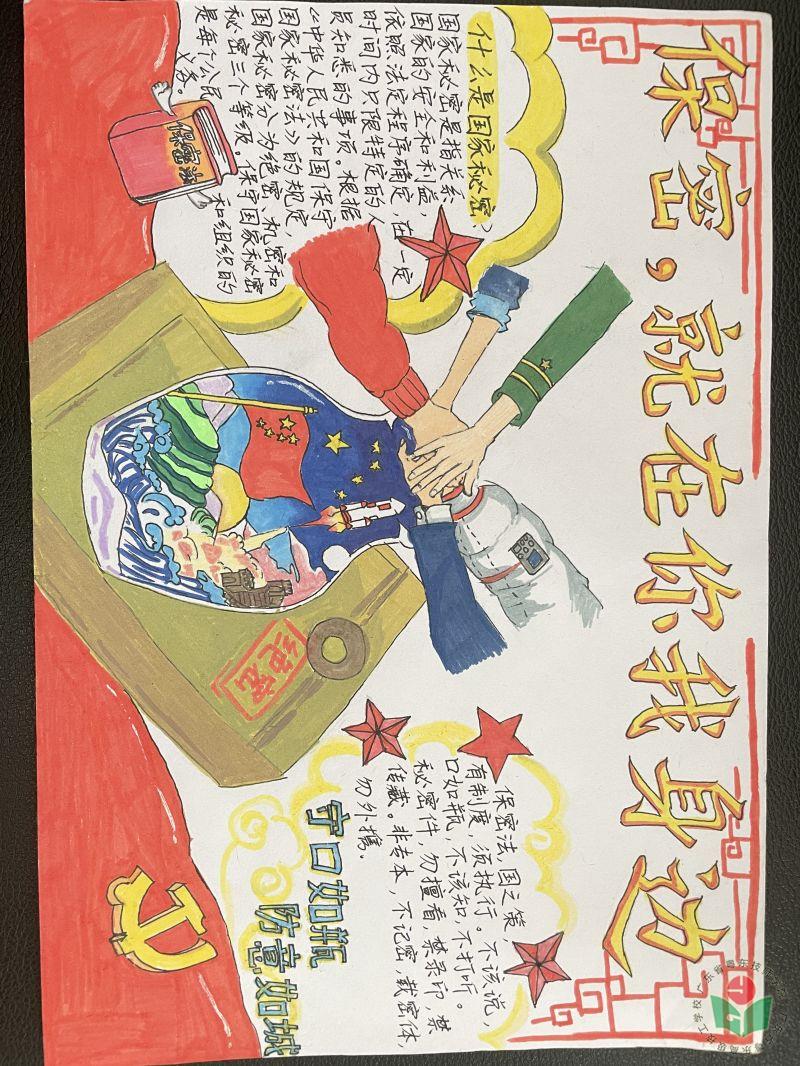 保密，就在你我身边
什么是国家秘密？
国家秘密是指关系
国家的安全和利益，
依照法定程序确定，在一定
时间内只限特定的人
员知悉的事项。根据
《中华人民共和国保守
国家秘密法》的规定，
国家秘密分为绝密、机密和
秘密三个等级。保守国家秘密
是每个公民和组织的
义务。
保密法
绝密
保密法，国之策，
有制度，须执行。不该说，
口如瓶，不该知，不打听。
秘密件，勿擅看，禁录印，禁
传藏。非专本，不记密，载密体，
勿外携。
守口如瓶
防意如城